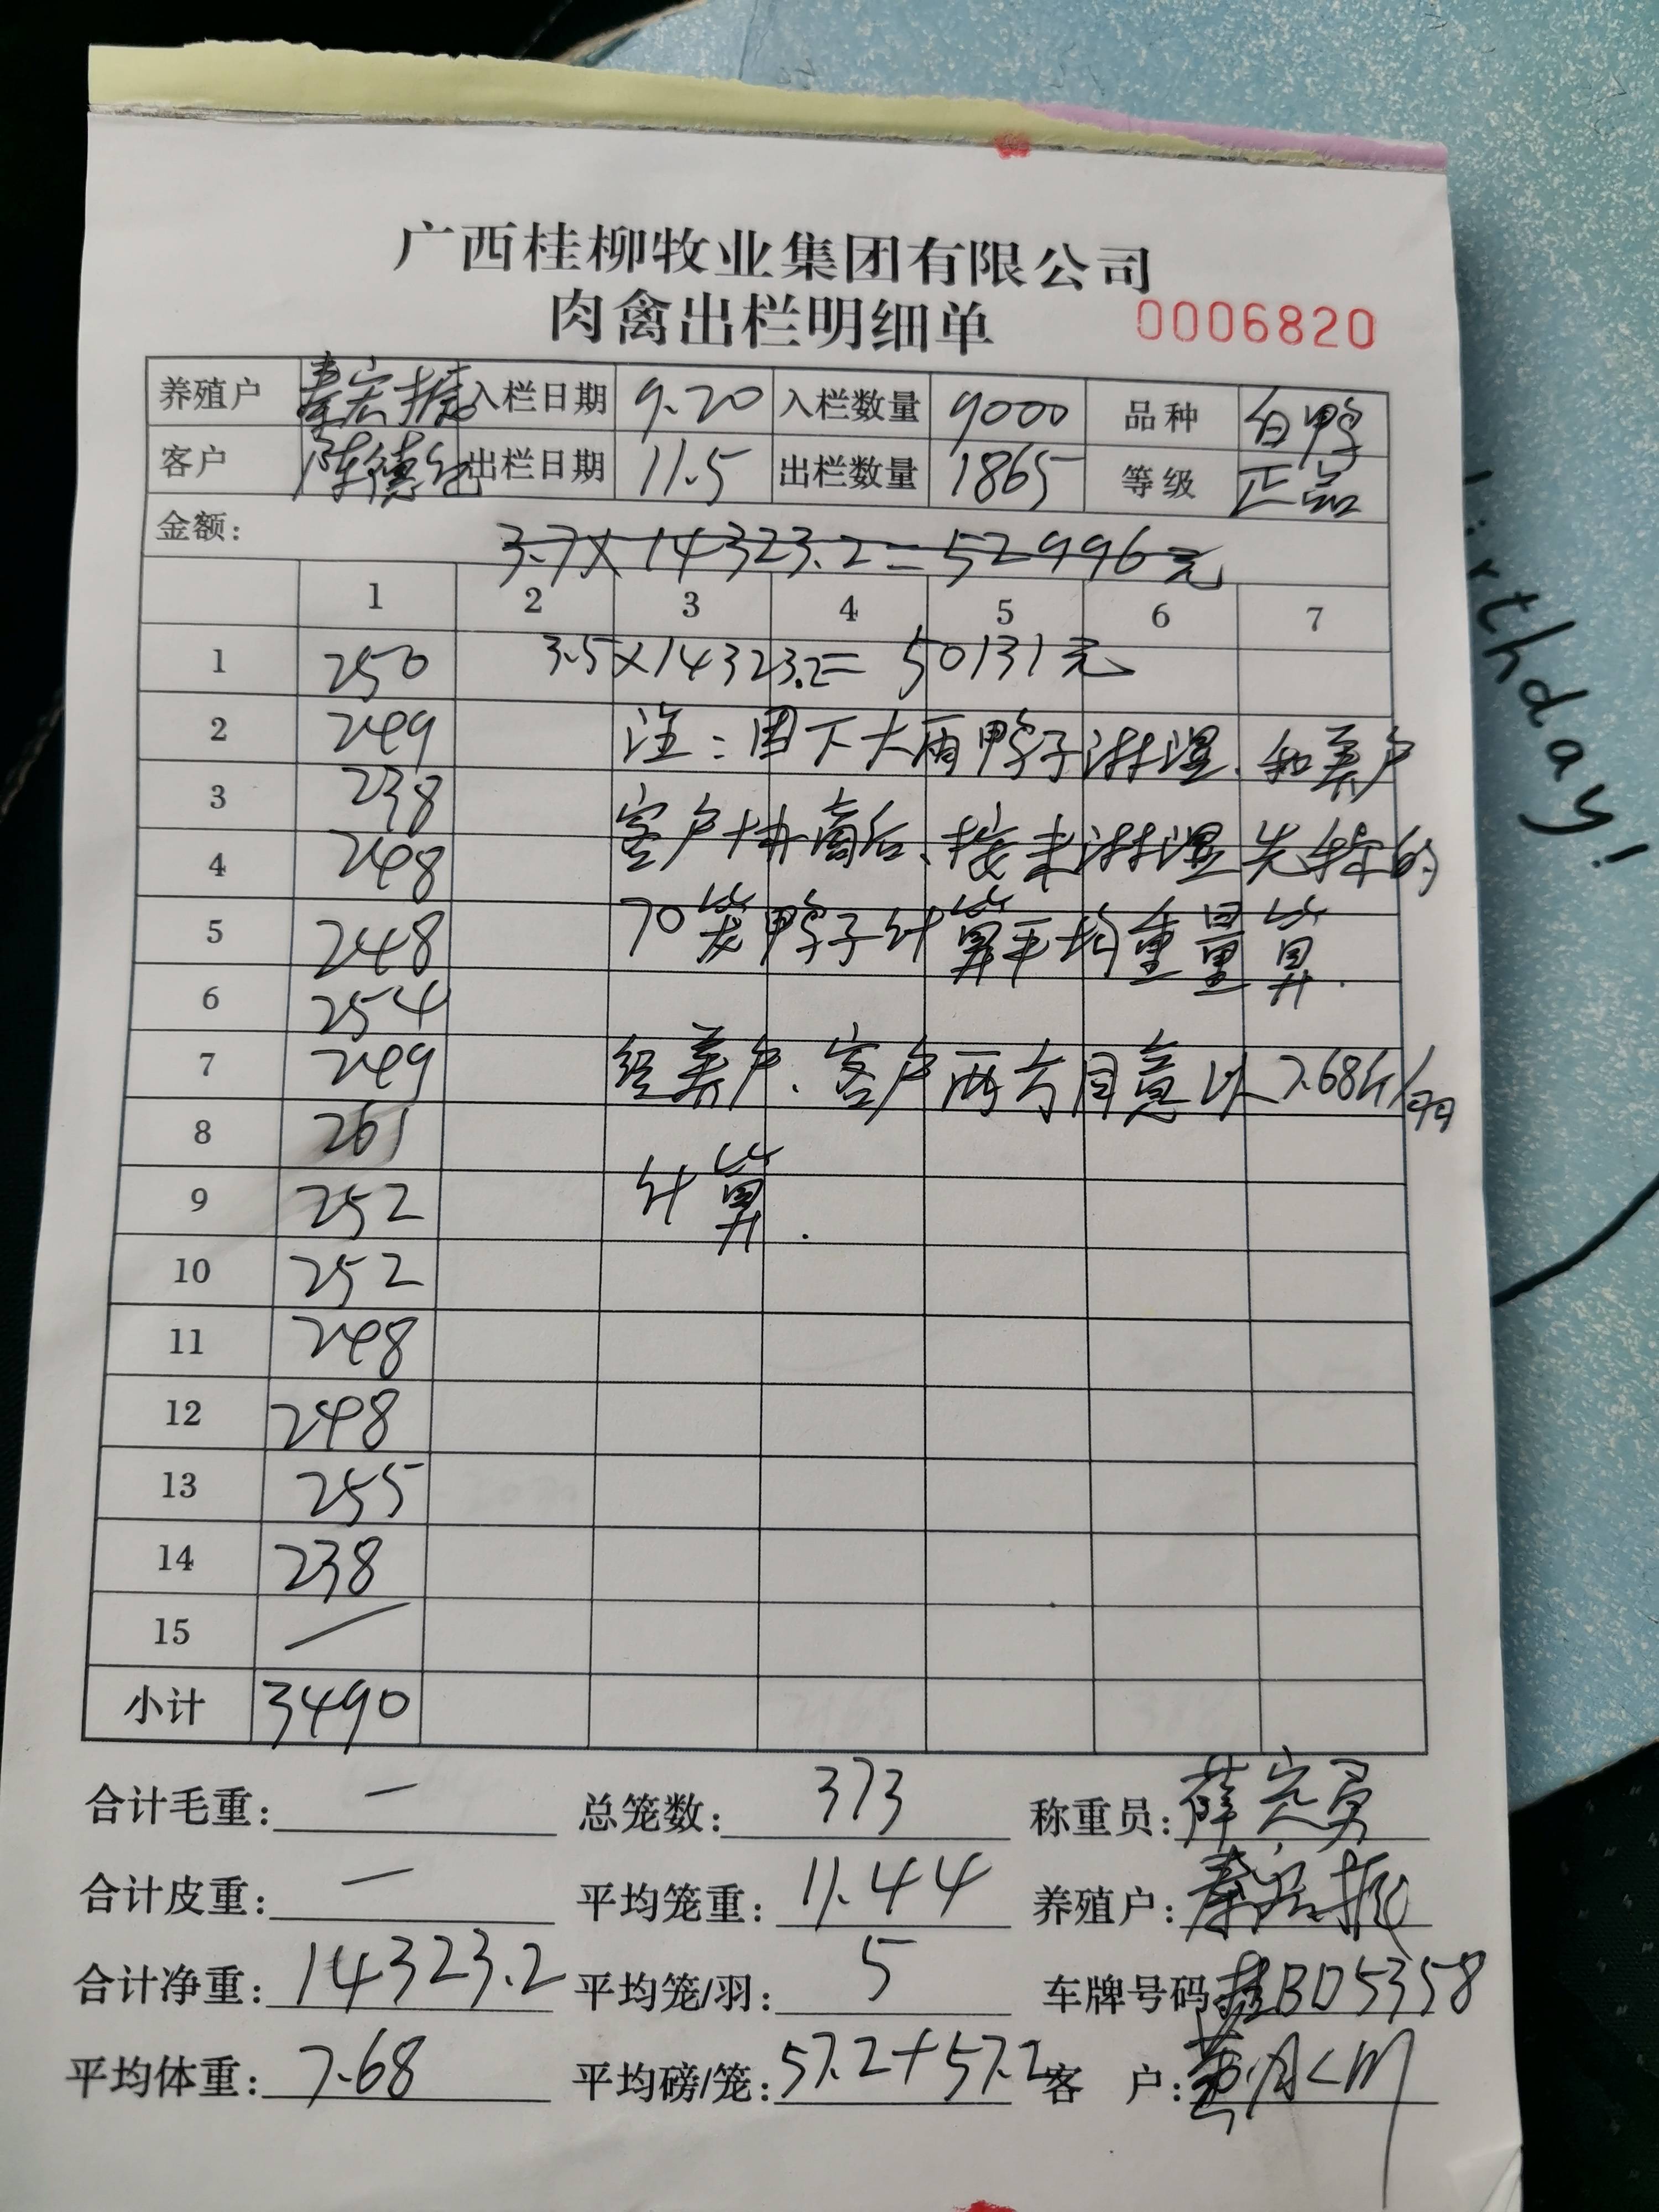 广西桂柳牧业集团有限公司
肉禽出栏明细单 0006820
养殖户 秦宏振 入栏日期 9.20 入栏数量 9000 品种 白鸭
客户 陈德 出栏日期 11.5 出栏数量 1865 等级 正品
金额: 3.7×14323.2=52996元
1 2 3 4 5 6 7
1 250 3.5×14323.2=50131元
2 249 注:因下大雨鸭子淋湿、和养户
3 238
4 248 客户协商后、按未淋湿先称的
5 248 70笼鸭子计算平均重量算.
6 254
7 249 经养户、客户两方同意以7.68斤/羽
8 261
9 252 计算.
10 252
11 248
12 248
13 255
14 238
15 /
小计 3490
合计毛重: — 总笼数: 373 称重员: 薛定勇
合计皮重: — 平均笼重: 11.44 养殖户: 秦宏振
合计净重: 14323.2 平均笼/羽: 5 车牌号码 桂BD5358
平均体重: 7.68 平均磅/笼: 57.2+57.2 客 户:
birthday!